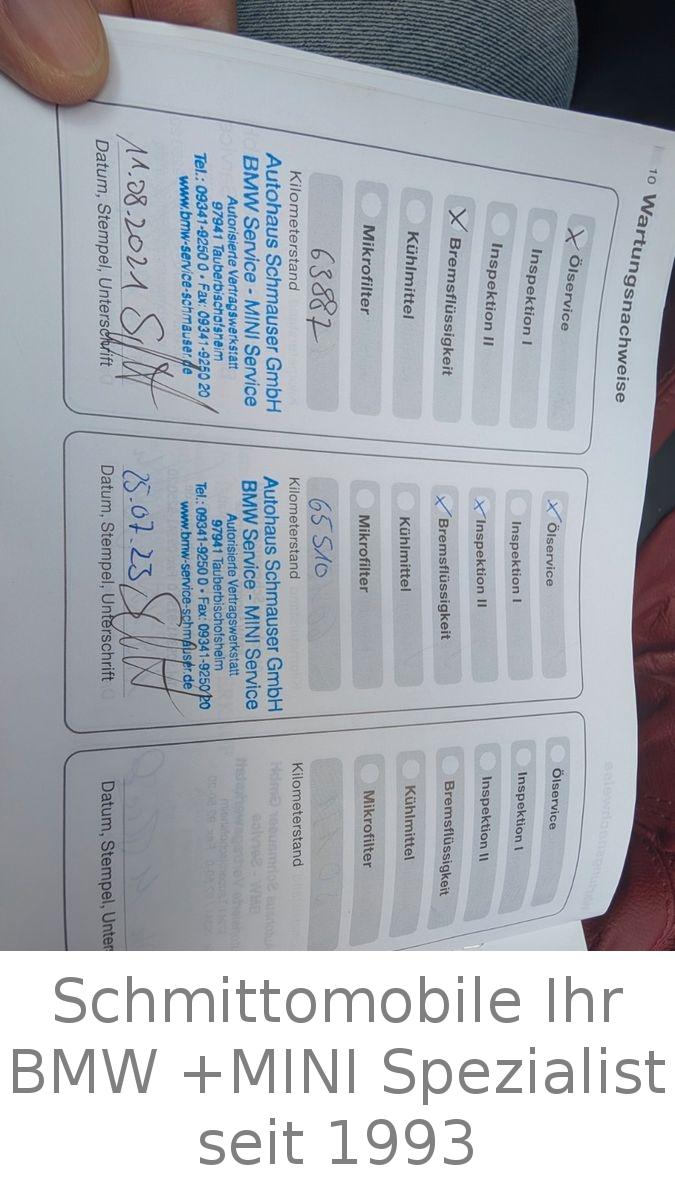 10 Wartungsnachweise
X Ölservice
Inspektion I
Inspektion II
X Bremsflüssigkeit
Kühlmittel
Mikrofilter
63887
Kilometerstand
Autohaus Schmauser GmbH
BMW Service - MINI Service
Autorisierte Vertragswerkstatt
97941 Tauberbischofsheim
Tel.: 09341-9250 0 • Fax: 09341-9250 20
www.bmw-service-schmauser.de
11.08.2021
Datum, Stempel, Unterschrift
X Ölservice
Inspektion I
X Inspektion II
X Bremsflüssigkeit
Kühlmittel
Mikrofilter
65510
Kilometerstand
Autohaus Schmauser GmbH
BMW Service - MINI Service
Autorisierte Vertragswerkstatt
97941 Tauberbischofsheim
Tel.: 09341-9250 0 • Fax: 09341-9250 20
www.bmw-service-schmauser.de
25.07.23
Datum, Stempel, Unterschrift
Ölservice
Inspektion I
Inspektion II
Bremsflüssigkeit
Kühlmittel
Mikrofilter
Kilometerstand
Datum, Stempel, Unter
Schmittomobile Ihr
BMW +MINI Spezialist
seit 1993